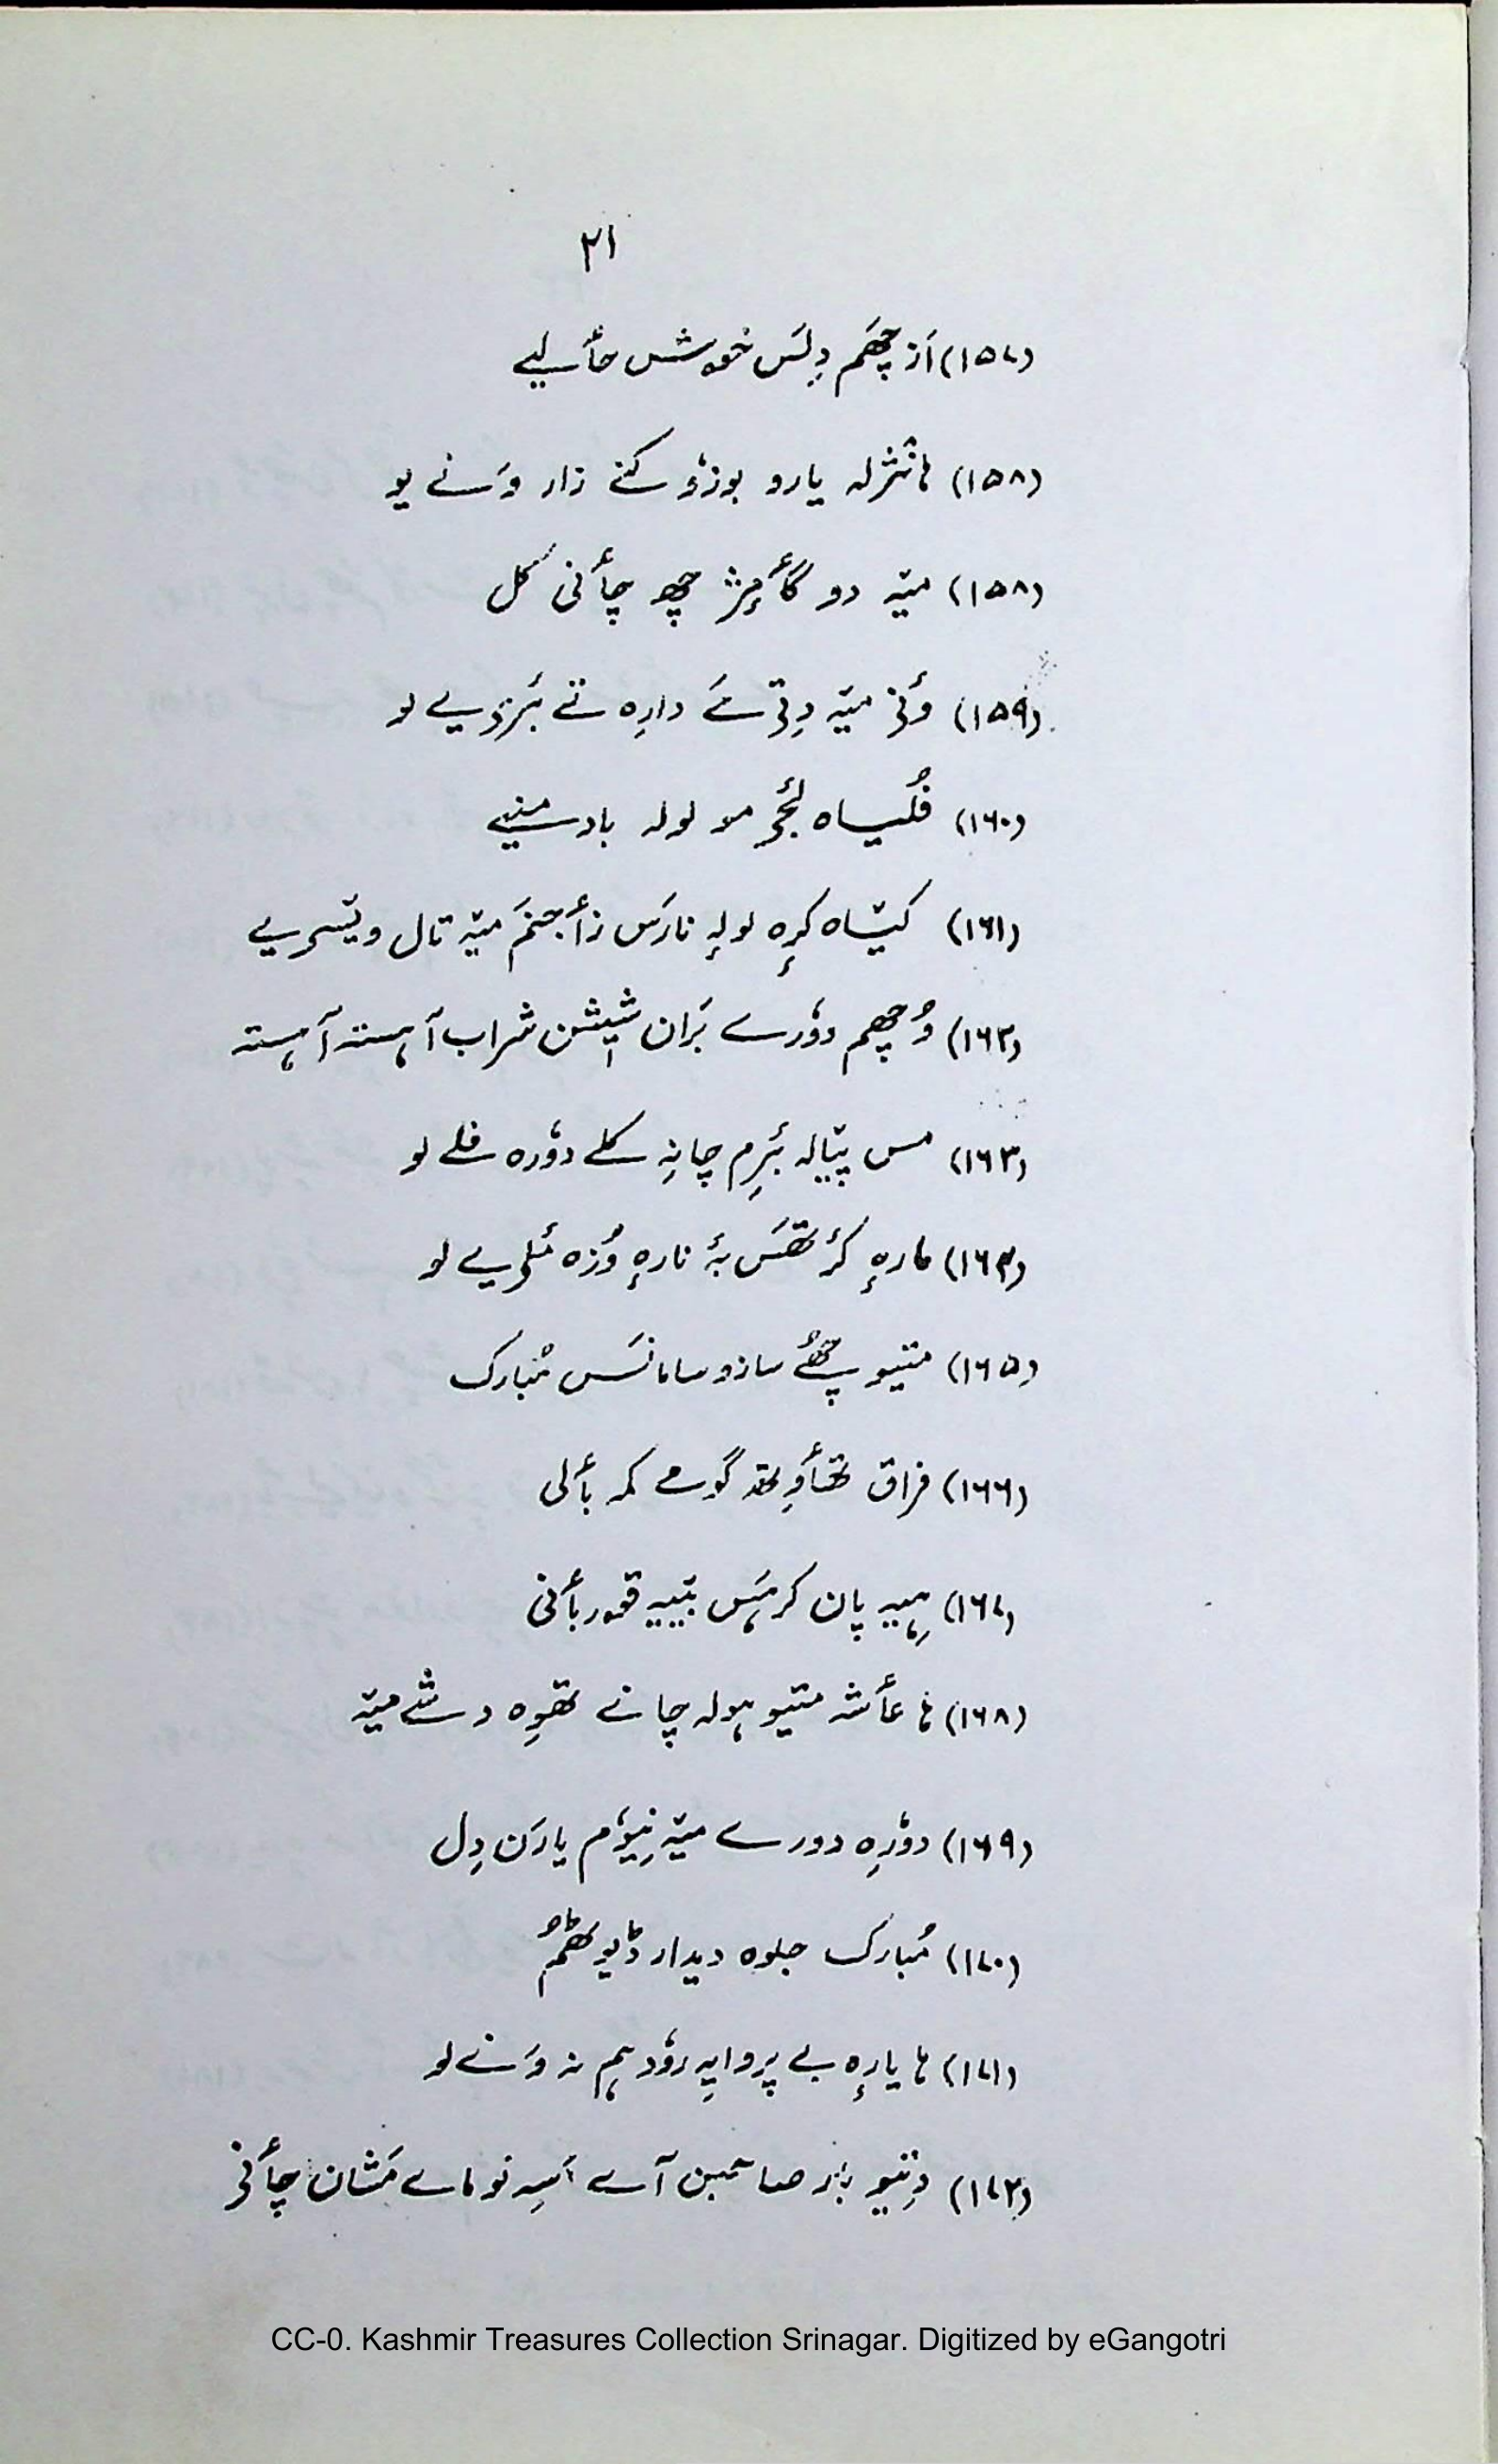 ۲۱
(۱۵۷) اَز چھَم دِلَس خوش حأ لیے
(۱۵۸) ہا نثرلہ یارو بوزٕ کنے زار وَنے یو
(۱۵۸) میٚہ دو گأ مٕژ چھِ چأنی کل
(۱۵۹) وٕنۍ میٚہ دِتی مَے دارِہ تے بَرٕیے لو
(۱۶۰) فُلیاہ لٔجۍ مو لولہ بادمنیے
(۱۶۱) کیٚاہ کرٕہ لولہٕ نارَس زأجنَم میٚہ تال ویٚسریے
(۱۶۲) وُچھم دوٗرے بَران شیٖشن شراب آہستہ آہستہ
(۱۶۳) مس پیٚالہ بَرِم چانہِ کلے دوٗرہ فلے لو
(۱۶۴) مارہٕ کرٔتھَس بۂ نارہٕ وُزہ مٔلریے لو
(۱۶۵) متیو چھُے سازو سامانَس مُبارک
(۱۶۶) فراق تھأوِتھ گومے کمہ بألی
(۱۶۷) ہیہِ پان کرہَس بیٚیہ قوربأنی
(۱۶۸) ہا عأشہ متیو ہولہ چانے تھوِہ دشے میٚہ
(۱۶۹) دوٗرِہ دورے میٚہ نِیوٗم یارَن دِل
(۱۷۰) مُبارک جلوہ دیدار ڈیوٗٹھمُ
(۱۷۱) ہا یارٕہ بے پروایہِ روٗدہم نہ وَنے لو
(۱۷۲) دِتیو بَر صاحبن آے اَسہِ نو ماے مَشان چأنۍ
CC-0. Kashmir Treasures Collection Srinagar. Digitized by eGangotri